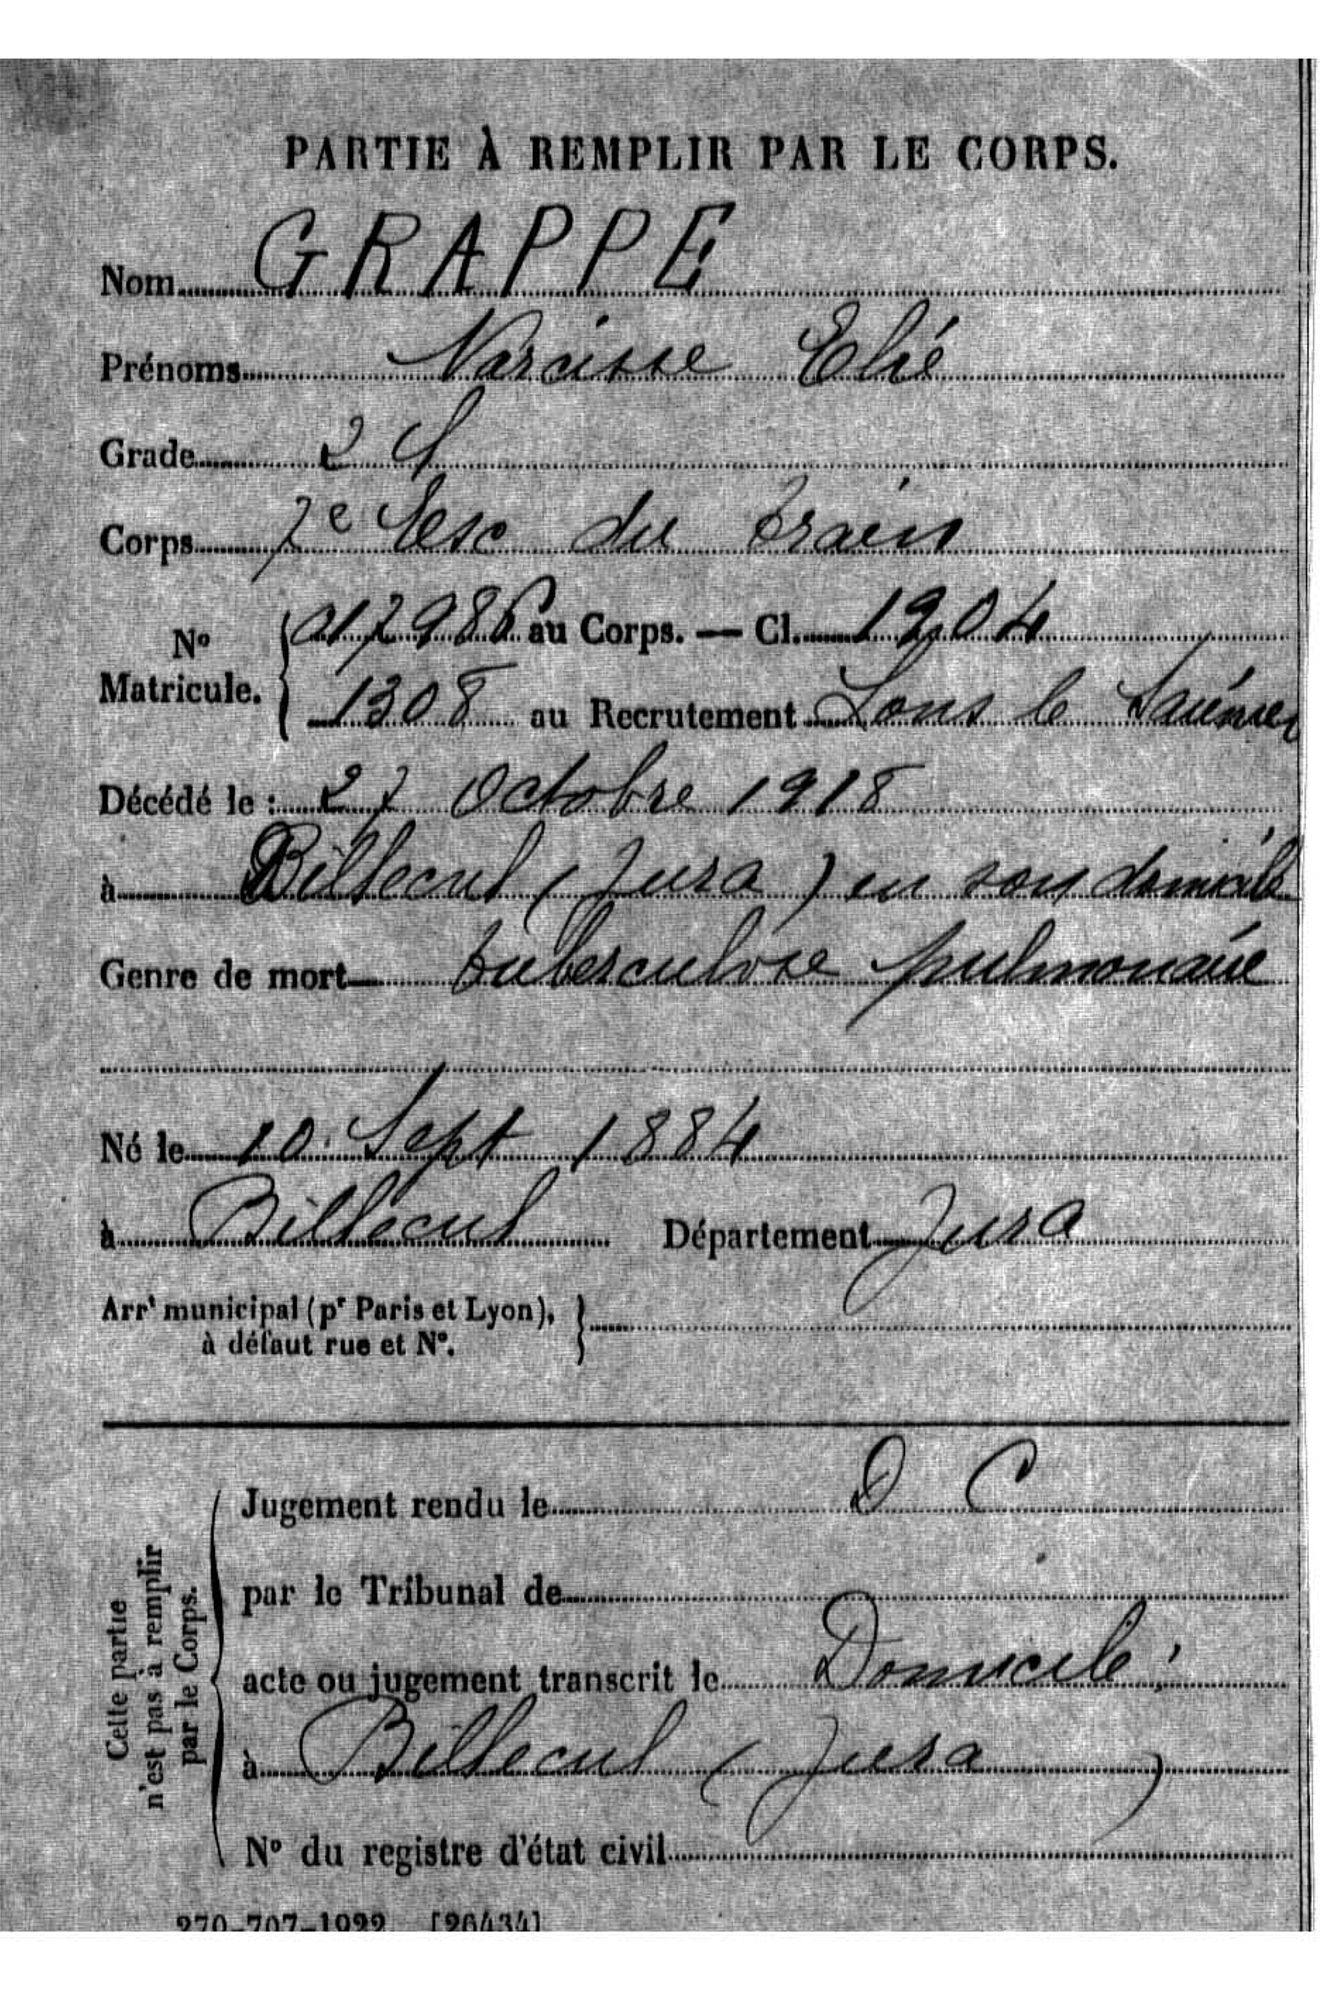 PARTIE À REMPLIR PAR LE CORPS.
Nom GRAPPE
Prénoms Narcisse Elie
Grade 2 S
Corps 7e Esc du train
No Matricule. 017986 au Corps. — Cl. 1904
1308 au Recrutement Lons le Saunier
Décédé le : 27 Octobre 1918
à Billecul (Jura) en son domicile
Genre de mort tuberculose pulmonaire
Né le 10 Sept 1884
à Billecul Département Jura
Arrt municipal (pr Paris et Lyon),
à défaut rue et No.
Cette partie
n'est pas à remplir
par le Corps.
Jugement rendu le D C
par le Tribunal de
acte ou jugement transcrit le Domicile :
à Billecul (Jura)
No du registre d'état civil
270-707-1922 [26434]